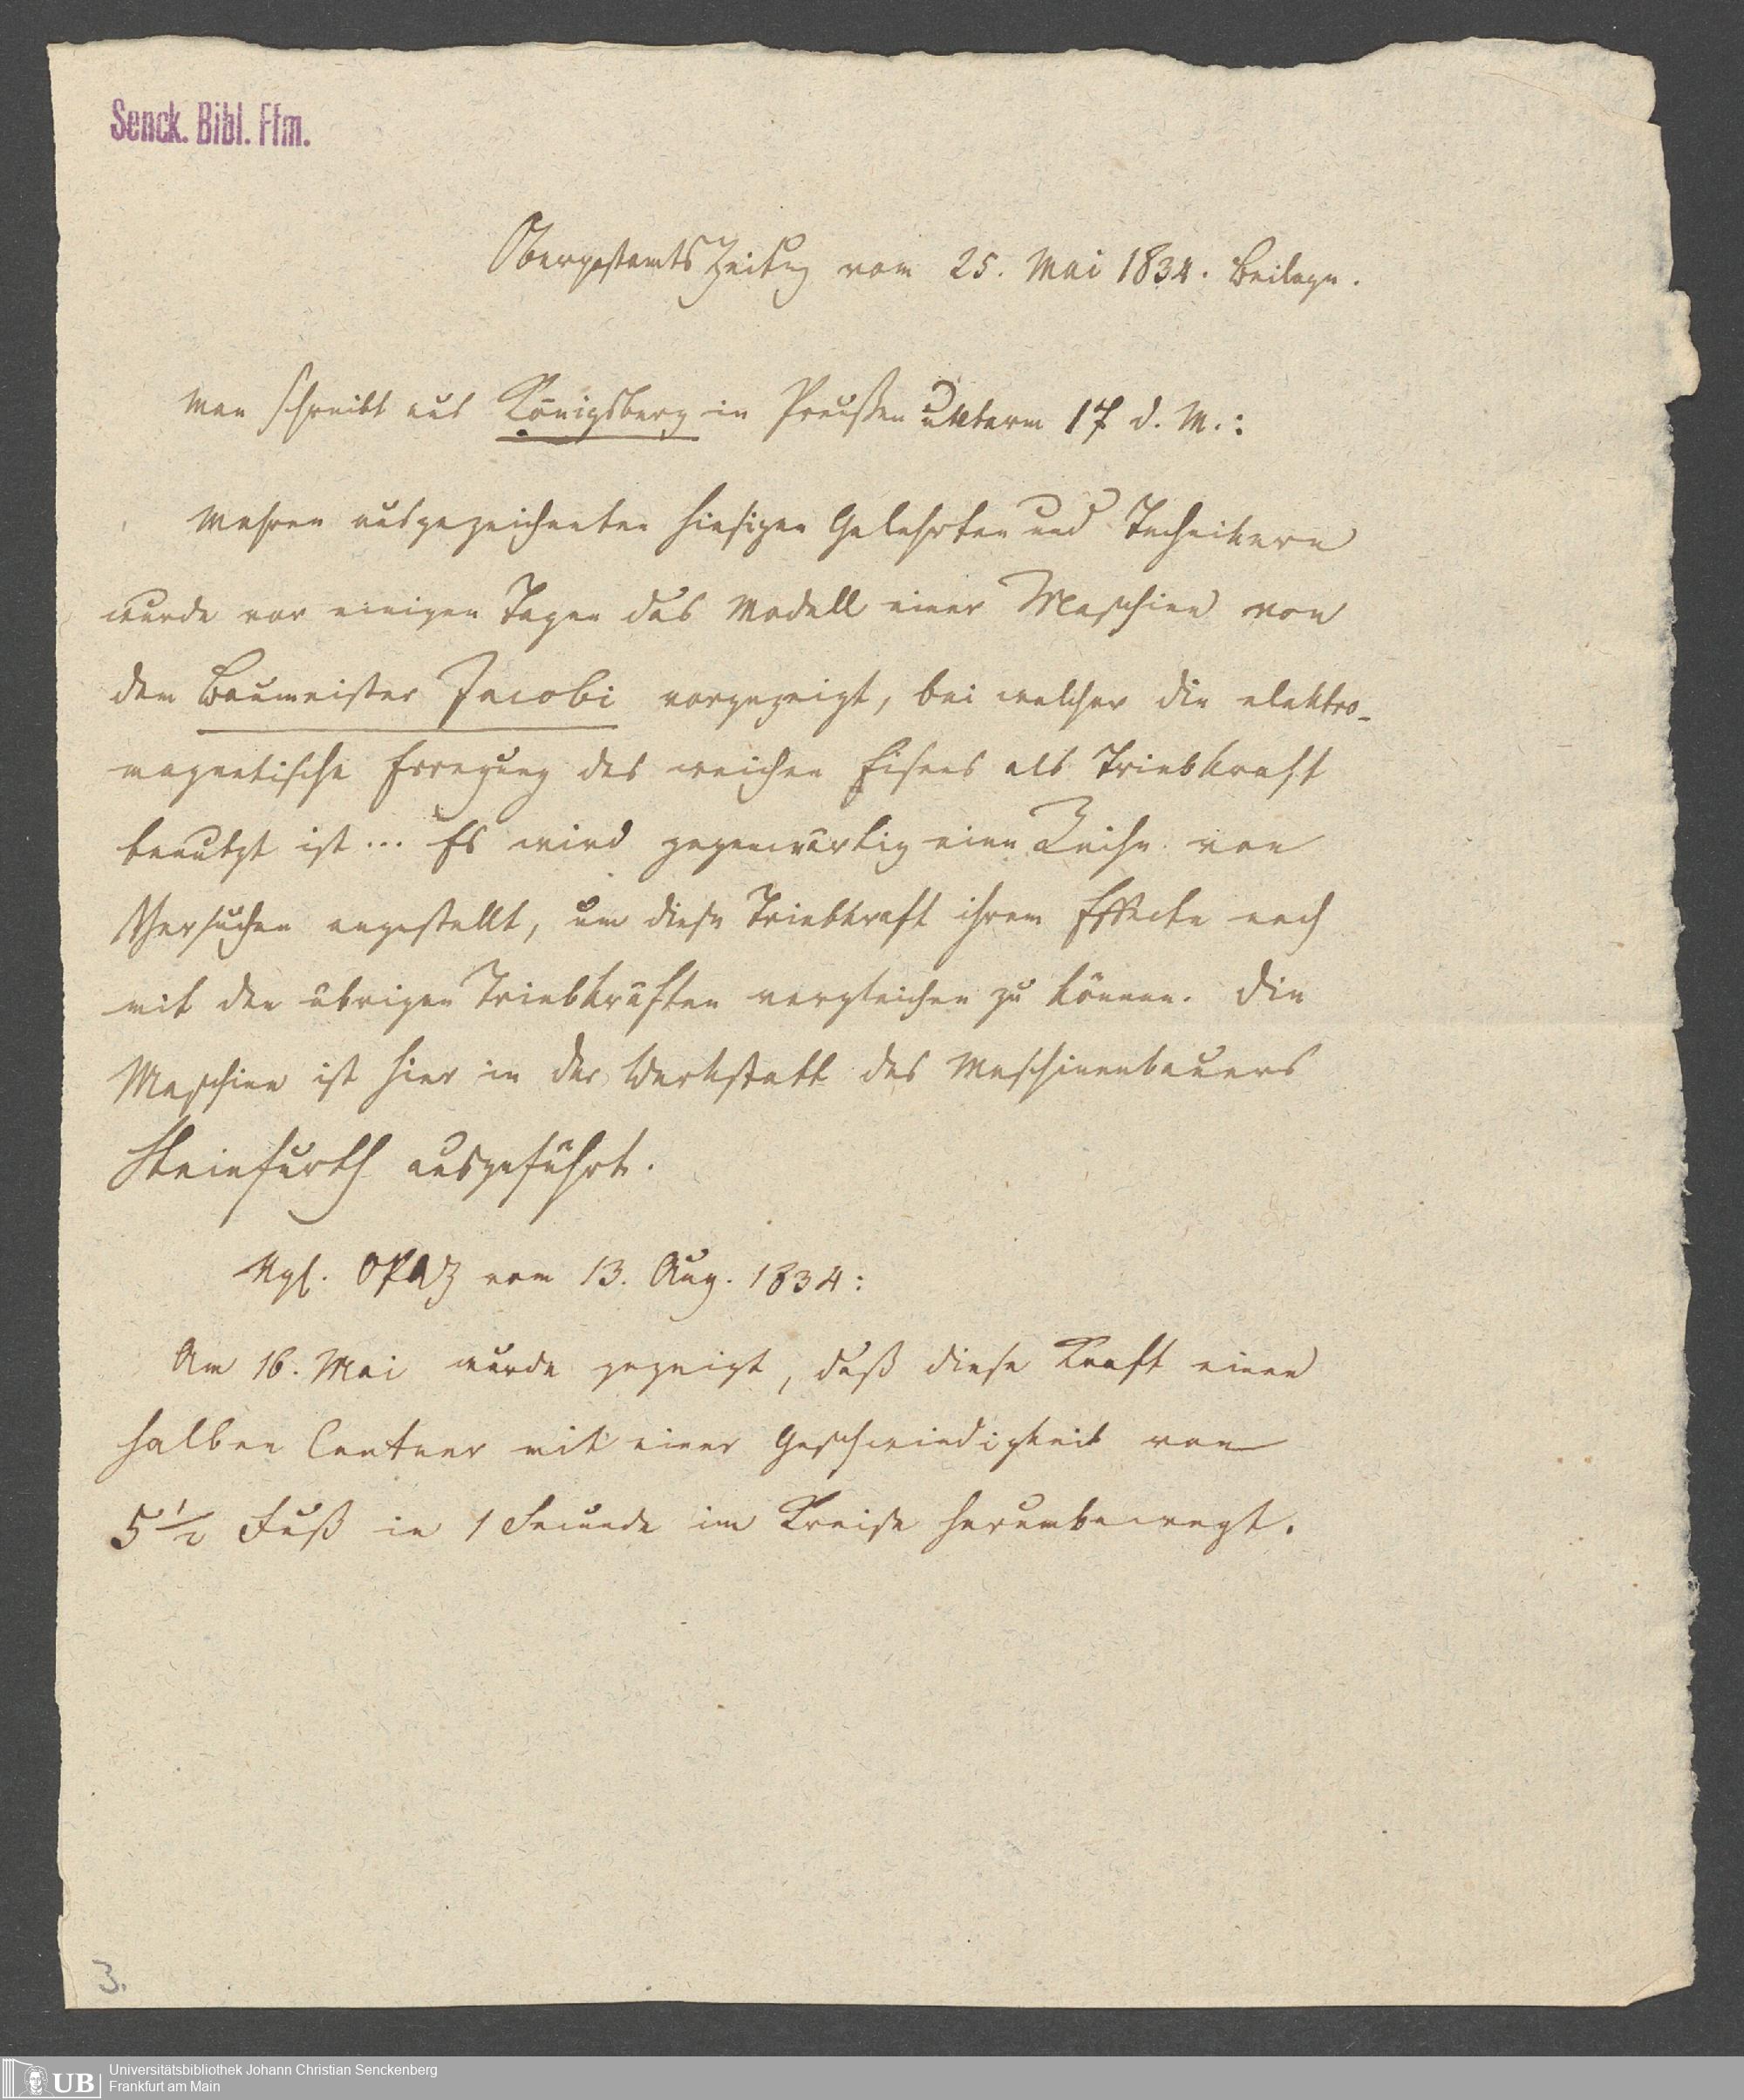 Senck. Bibl. Ffm.
Oberpostamts Zeitung vom 25. Mai 1834. Beilage.
Man schreibt aus Königsberg in Preußen unterm 17 d. M.:
Mehren ausgezeichneten hiesigen Gelehrten und Technikern
wurde vor einigen Tagen das Modell einer Maschine von
dem Baumeister Jacobi vorgezeigt, bei welcher die elektro-
magnetische Erregung des weichen Eisens als Triebkraft
benutzt ist... Es wird gegenwärtig eine Reihe von
Versuchen angestellt, um diese Triebkraft ihrem Effecte nach
mit den übrigen Triebkräften vergleichen zu können. Die
Maschine ist hier in der Werkstatt des Maschinenbauers
Steinfurth ausgeführt.
Vgl. OPAZ vom 13. Aug. 1834:
Am 16. Mai wurde gezeigt, daß diese Kraft einen
halben Centner mit einer Geschwindigkeit von
5 1/2 Fuß in 1 Secunde im Kreise herumbewegt.
3.
UB
Universitätsbibliothek Johann Christian Senckenberg
Frankfurt am Main